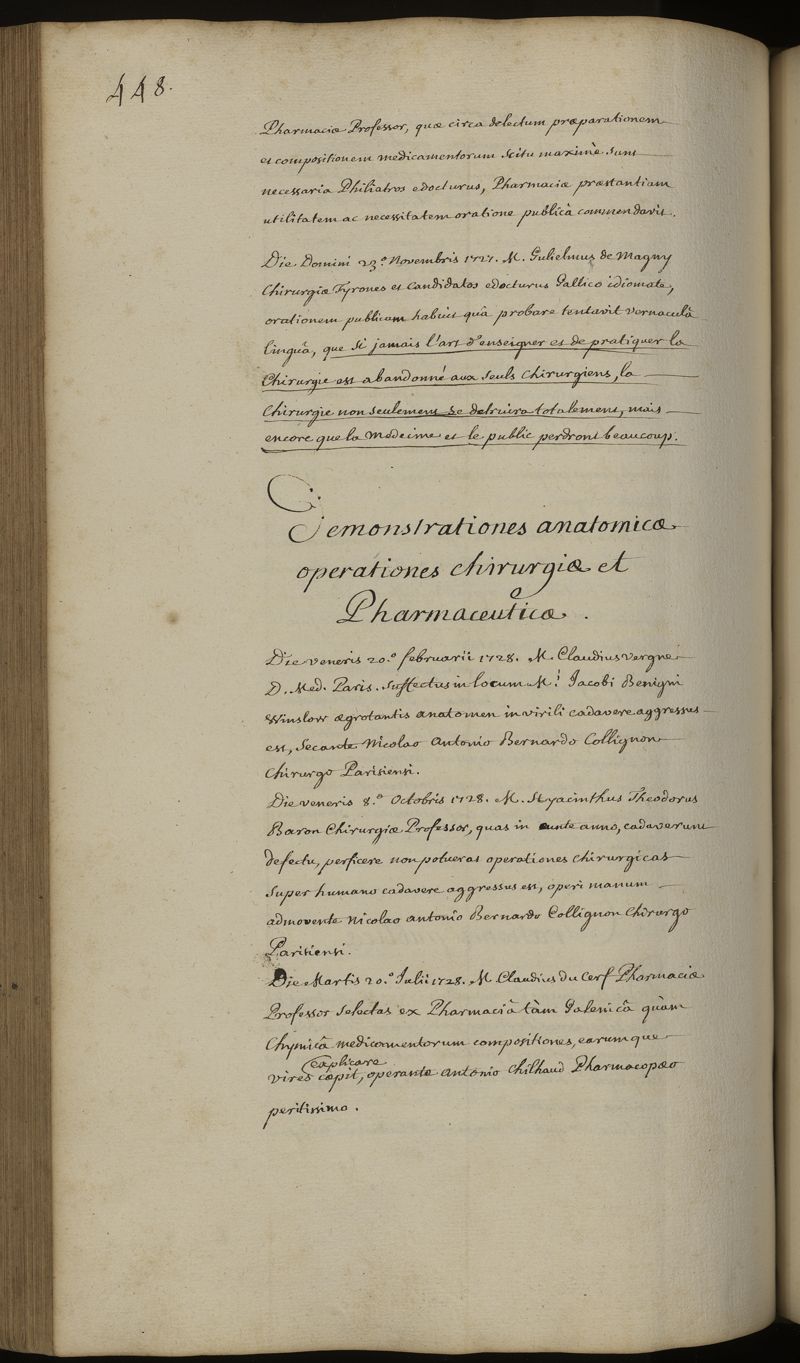 448.
Pharmaciæ Professor, quæ circa delectum præparationem
et compositionem medicamentorum scitu maximè sunt
necessaria Philiatros edocturus, Pharmaciæ præstantiam
utilitatem ac necessitatem oratione publicâ commendavit.
Die Domini 23.º Novembris 1727. M. Gulielmus de Magny
Chirurgiæ Tyrones et Candidatos edocturus Gallico idiomate,
orationem publicam habuit quâ probare tentavit vernaculâ
linguâ, que si jamais l'art d'enseigner et de pratiquer la
Chirurgie est abandonné aux seuls Chirurgiens, la
Chirurgie non seulement se detruira totalement, mais
encore que la Medecine et le public perdront beaucoup.
Demonstrationes anatomicæ
operationes chirurgiæ et
Pharmaceuticæ.
Die veneris 20.º februarii 1728. M. Claudius vergne
D. Med. Paris. suffectus in locum M.i Jacobi Benigni
Winslow ægrotantis anatomen in virili cadavere aggressus
est, secante Nicolao Antonio Bernardo Collignon
Chirurgo Parisiensi.
Die veneris 8.º Octobris 1728. M. Hyacinthus Theodorus
Baron Chirurgiæ Professor, quas in eunte anno, cadaverum
defectu, perficere non potuerat operationes chirurgicas
super humano cadavere aggressus est, operi manum
admovente Nicolao antonio Bernardo Collignon Chirurgo
Parisiensi.
Die Martis 20.º Julii 1728. M. Claudius du Cerf Pharmaciæ
Professor selectas ex Pharmaciâ tàm Galenicâ quàm
Chymicâ medicamentorum compositiones, earumque
explicare
vires cæpit, operante Antonio Chilhaud Pharmacopæo
peritissimo.